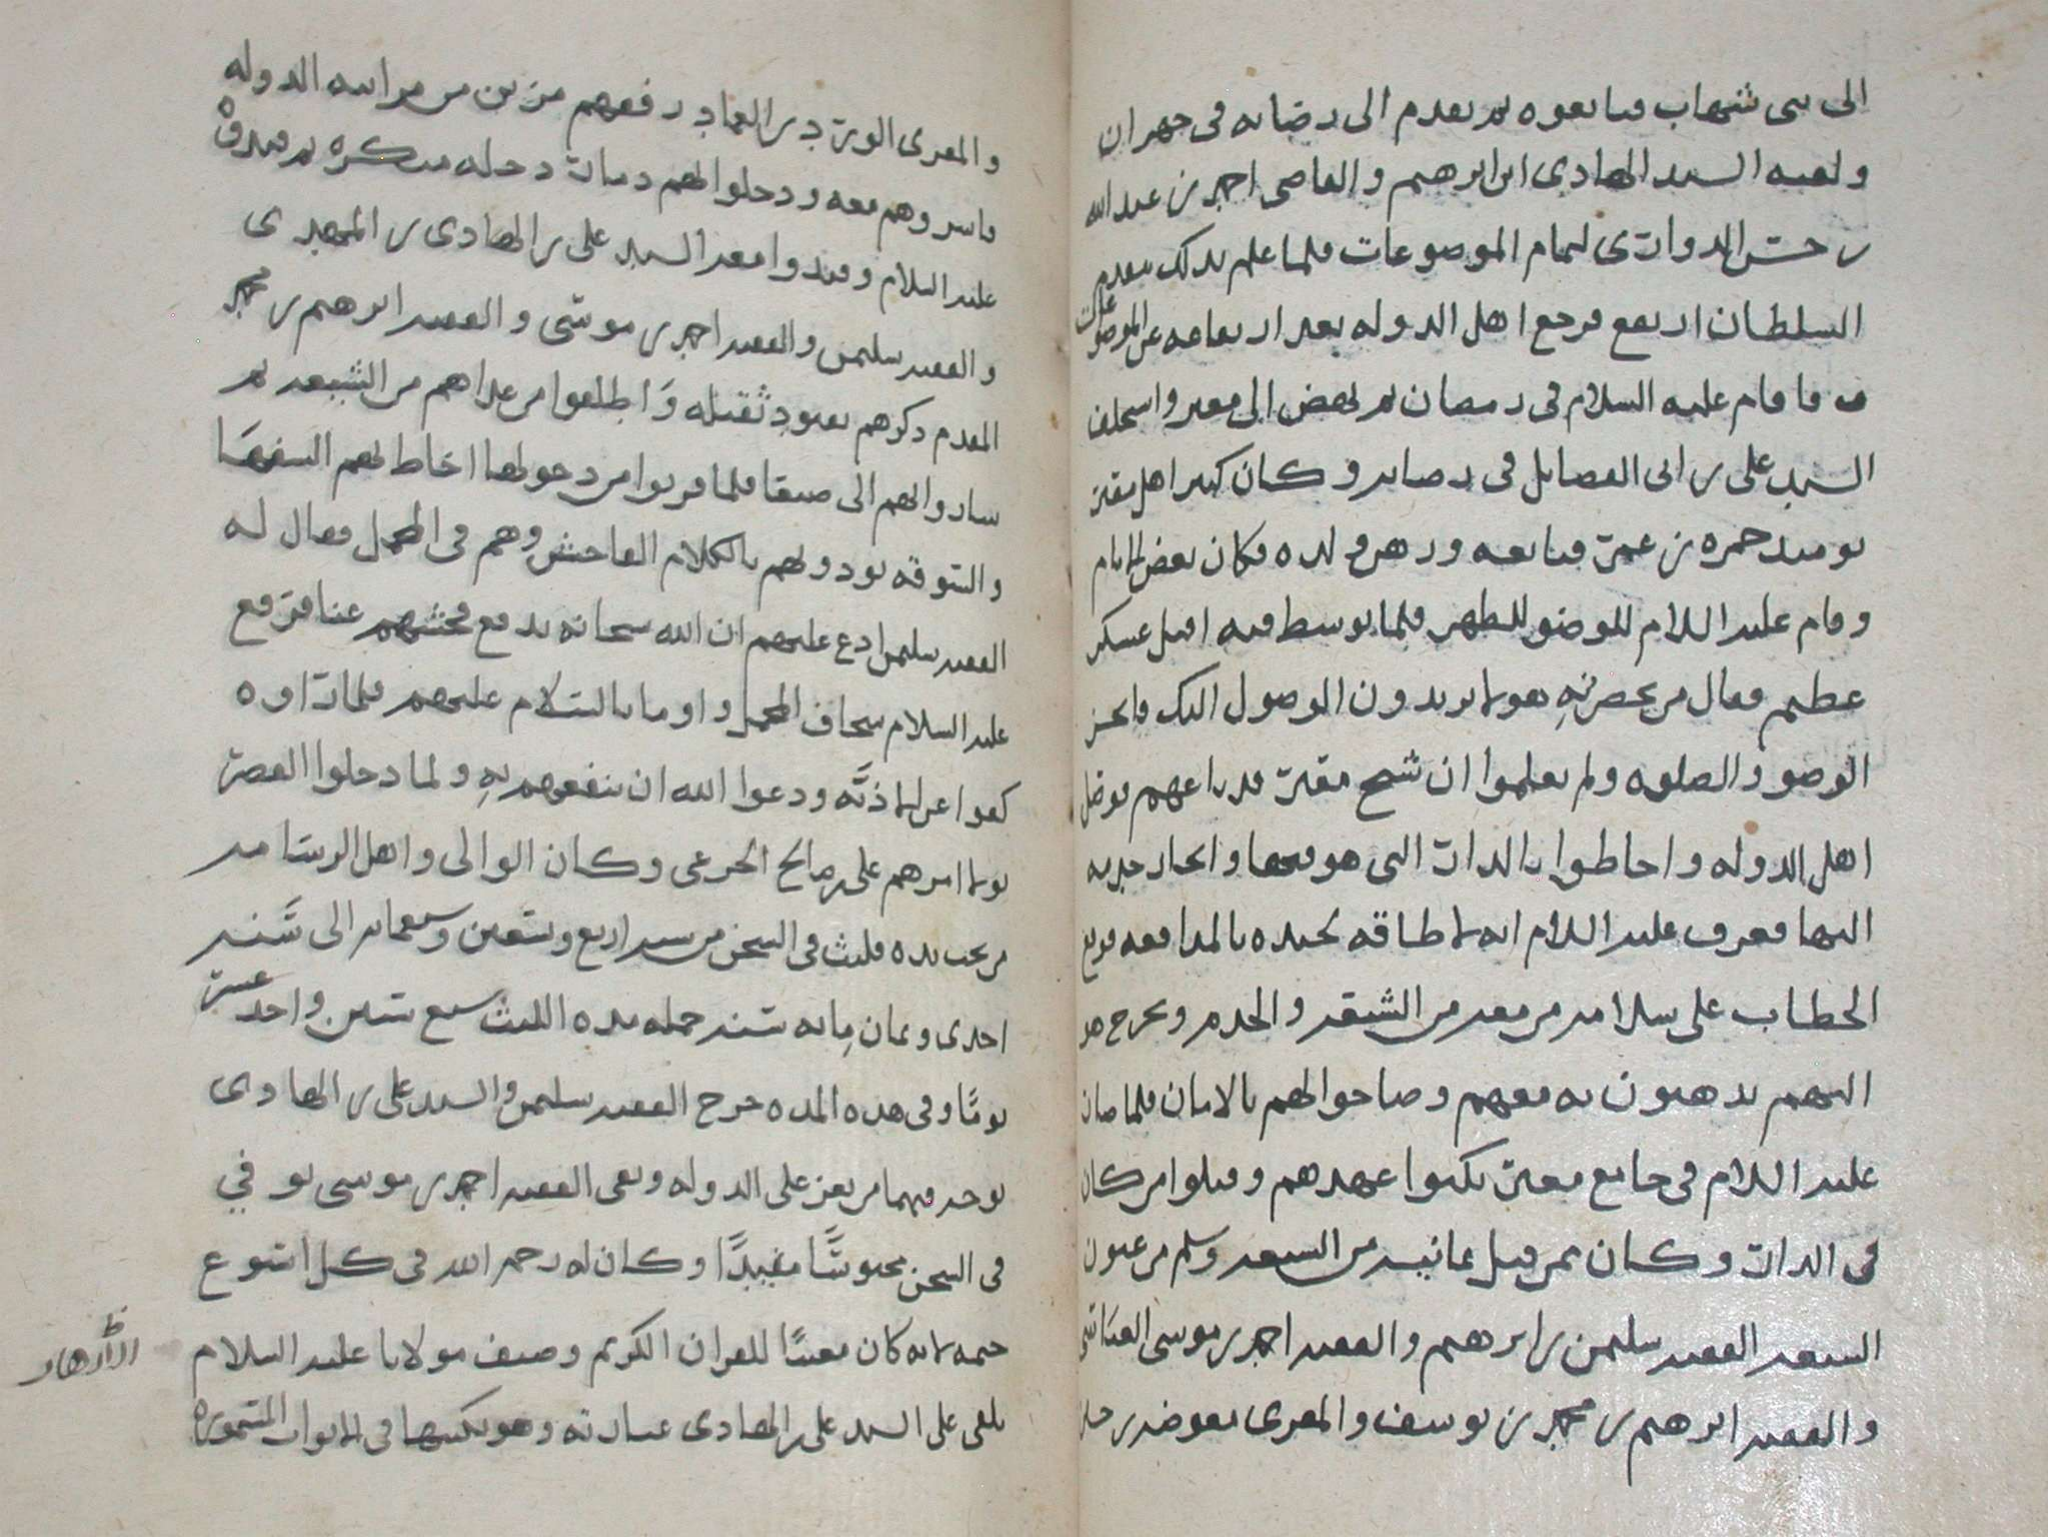 الى بنى شهاب فبايعوه ثم تقدم الى رصابه فى جهران
ولقيه السيد الهادى ابن ابرهيم والقاضى احمد بن عبد الله
بن حسن الدوارى لتمام الموضوعات فلما علم بذلك بتقدم
السلطان ارتفع فرجع اهل الدوله بعد ارتفاعه عن الموضوعات
فاقام عليه السلام فى رمضان ثم نهض الى معبر واستخلف
السيد على بن ابى الفضايل فى رصابه وكان كبير اهل معبر
يوميذ حمزه بن عمر فبايعه ورهن ولده فكان بعض الايام
وقام عليه السلام للوضو للطهر فلما توسط فيه اقبل عسكر
عظيم فقال من بحضرته هولا يريدون الوصول اليك فانجز
الوضو والصلوه ولم يعلموا ان شيخ معبر قد باعهم فوصل
اهل الدوله واحاطوا بالدار التى هو فيها وانحاز حربه
اليها فعرف عليه السلام انه لا طاقه لجنده بالمدافعه فوقع
الخطاب على سلامه من معه من الشيعه والخدم ويخرج هو
اليهم يذهبون به معهم وصاحوا لهم بالامان فلما صار
عليه السلام فى جامع معبر نكثوا عهدهم وقتلوا من كان
فى الدار وكان ممن قتل ثمانيه من الشيعه وسلم من عيون
الشيعه الفقيه سليمن بن ابرهيم والفقيه احمد بن موسى العباسى
والفقيه ابرهيم بن محمد بن يوسف والمقرى معوضه بن
والمقرى الورد بن العماد رفعهم مزين من مراتبه الدوله
فاسروهم معه ودخلوا لهم دمار دخله منكره ثم قيدوه
عليه السلام وقيدوا معه السيد على بن الهادى بن المهدى
والفقيه سليمن والفقيه احمد بن موسى والفقيه ابرهيم بن محمد
المقدم ذكرهم بقيود ثقيله واطلقوا من عداهم من الشيعه ثم
ساروا بهم الى صنعا فلما قربوا من دخولها احاط بهم السفها
والسوقه يوذونهم بالكلام الفاحش وهم فى المحمل فقال له
الفقيه سليمن ادع عليهم ان الله سبحانه يدفع فحشهم عنا فرفع
عليه السلام سجاف المحمل واوما بالسلام عليهم فلما راوه
كفوا عن الاذيه ودعوا الله ان ينفعهم به ولما دخلوا القصر
تولا امرهم على بن صالح الخزعى وكان الوالى واهل الرسامه
من تحت يده فلبث فى السجن من سنه اربع وتسعين وسبعمايه الى سنه
احدى وثمان مايه سنه جمله مده اللبث سبع سنين واحد عشر
يومًا وفى هذه المده خرج الفقيه سليمن والسيد على بن الهادى
بوجه فيهما من يعز على الدوله وبقى الفقيه احمد بن موسى توفي
فى السجن محبوسًا مقيدًا وكان له رحمه الله فى كل اسبوع
ختمه لانه كان مغيبًا للقران الكريم وصنف مولانا عليه السلام
يلقى على السيد على بن الهادى عبارته وهو يكتبها فى الابواب المتموره
الازهار